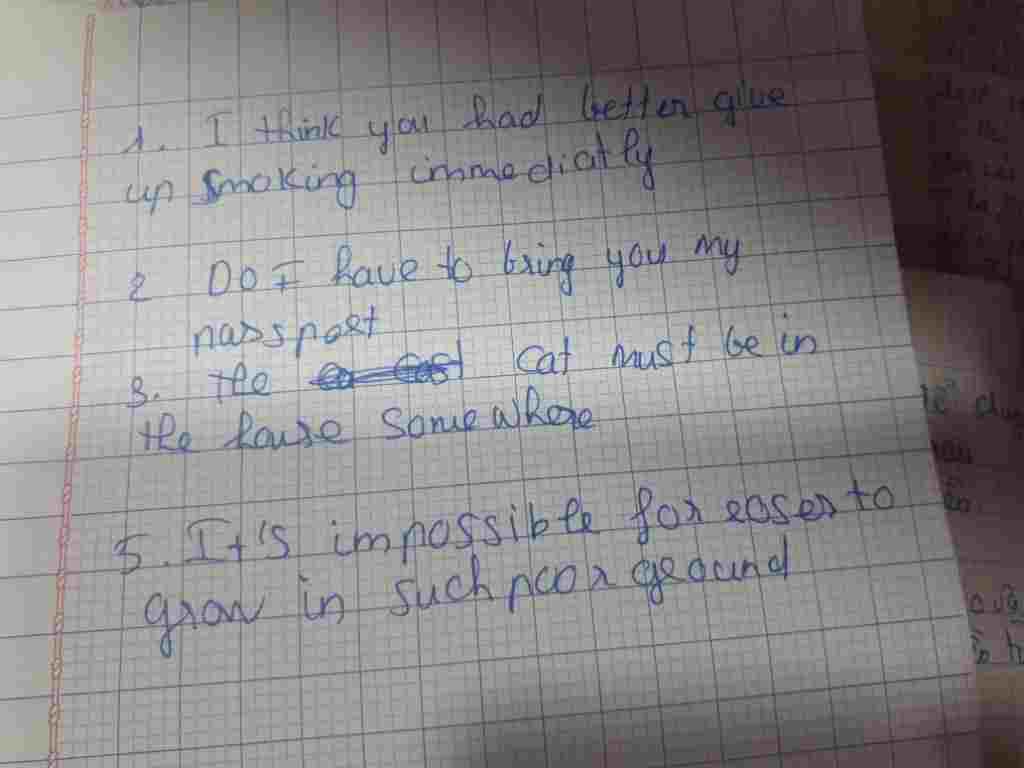 1. I think you had better give
up smoking immediatly
2 Do I have to bring you my
passport
3. the cat must be in
the house somewhere
5. It's impossible for roses to
grow in such poor ground